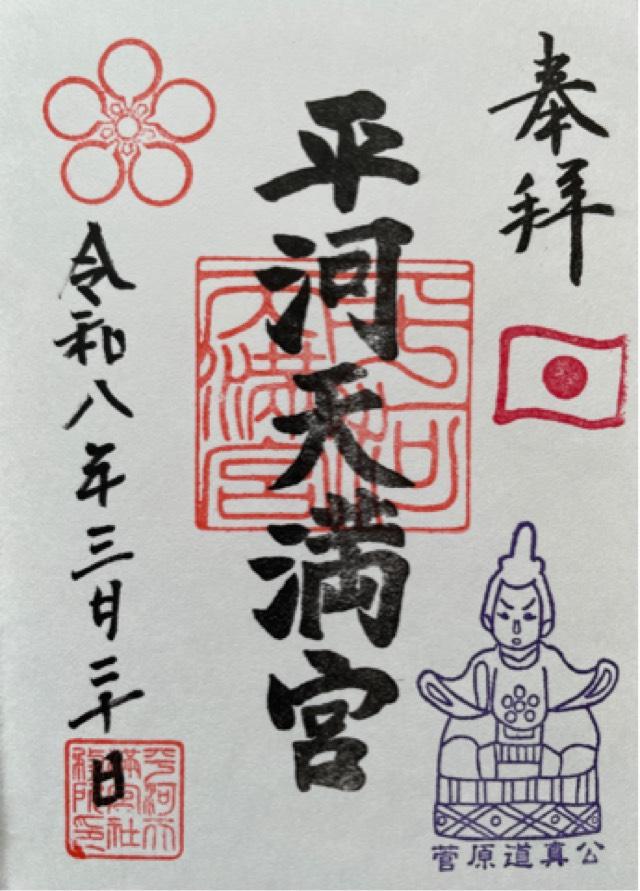 奉拝
平河天満宮
平河天満宮
令和八年三月二十日
菅原道真公